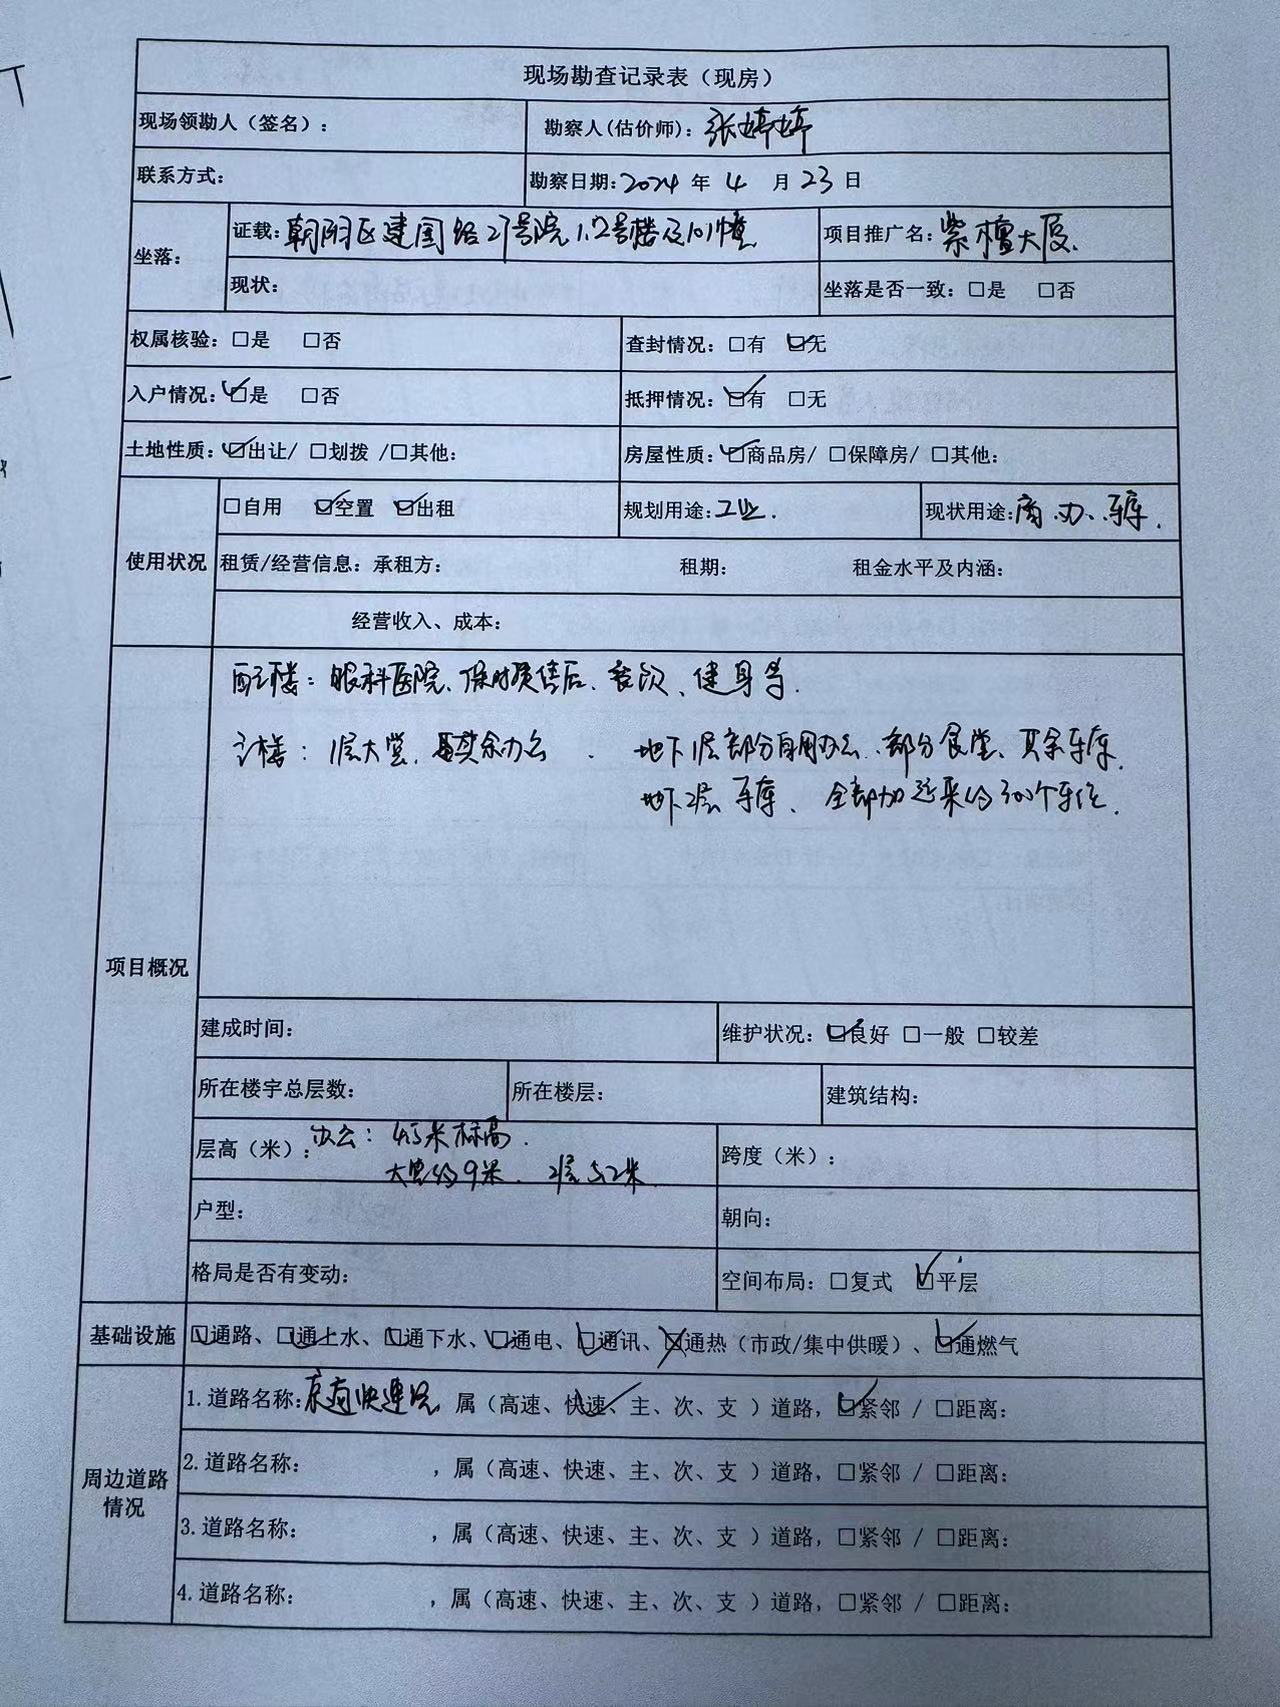 现场勘查记录表（现房）
现场领勘人（签名）： 勘察人(估价师)：张婷婷
联系方式： 勘察日期：2024 年 4 月 23 日
坐落： 证载：朝阳区建国路27号院1、2号楼及101幢 项目推广名：紫檀大厦.
现状： 坐落是否一致：□是 □否
权属核验：□是 □否 查封情况：□有 ☑无
入户情况：☑是 □否 抵押情况：☑有 □无
土地性质：☑出让/ □划拨 /□其他： 房屋性质：☑商品房/ □保障房/ □其他：
使用状况 □自用 ☑空置 ☑出租 规划用途：工业. 现状用途：商、办、车库.
租赁/经营信息：承租方： 租期： 租金水平及内涵：
经营收入、成本：
项目概况
配楼：眼科医院、保时捷售后、餐饮、健身等.
主楼：1层大堂, 其余办公. 地下1层部分自用办公、部分食堂、其余车库.
地下2层车库、全部加起来约300个车位.
建成时间： 维护状况：☑良好 □一般 □较差
所在楼宇总层数： 所在楼层： 建筑结构：
层高（米）：办公：4.5米标高.
大堂约9米. 2层5.2米. 跨度（米）：
户型： 朝向：
格局是否有变动： 空间布局：□复式 ☑平层
基础设施 ☑通路、☑通上水、☑通下水、☑通电、☑通讯、☒通热（市政/集中供暖）、☑通燃气
周边道路情况
1.道路名称：京通快速路，属（高速、快速✓、主、次、支 ）道路，☑紧邻 / □距离：
2.道路名称： ，属（高速、快速、主、次、支 ）道路，□紧邻 / □距离：
3.道路名称： ，属（高速、快速、主、次、支 ）道路，□紧邻 / □距离：
4.道路名称： ，属（高速、快速、主、次、支 ）道路，□紧邻 / □距离：